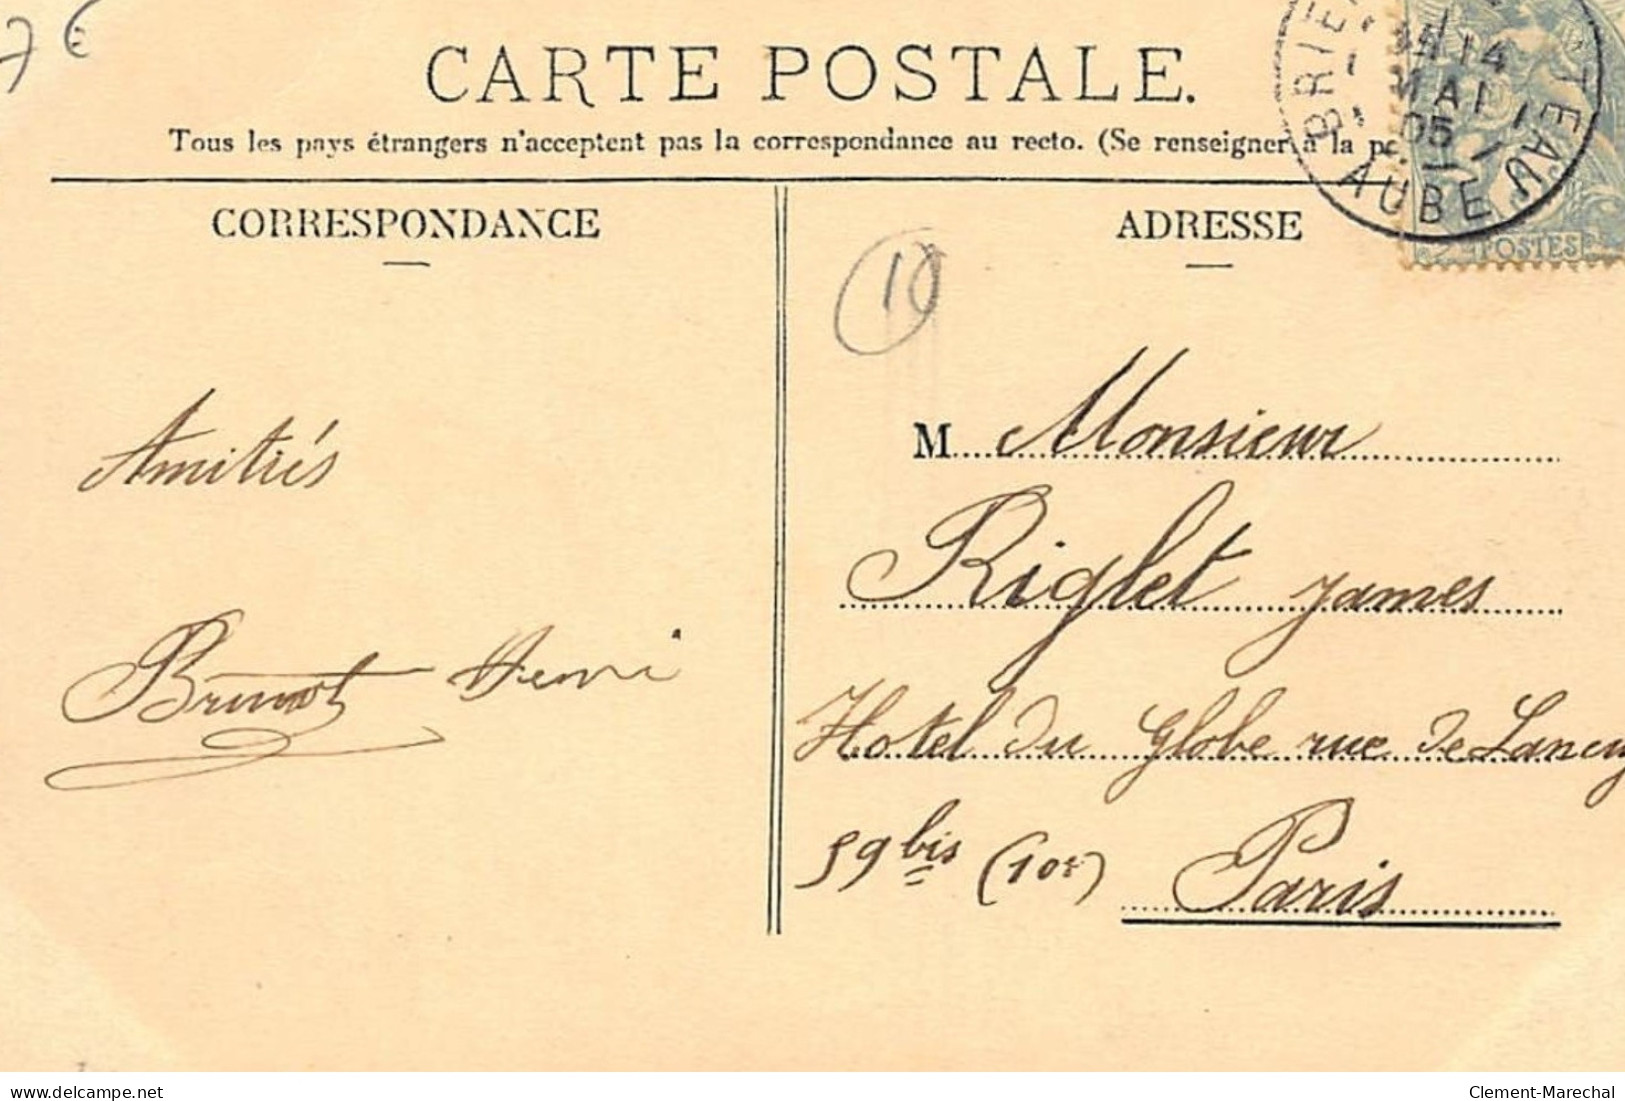 7€
CARTE POSTALE.
Tous les pays étrangers n'acceptent pas la correspondance au recto. (Se renseigner à la
BRIE TEAU
14
MAI
05
AUBE
POSTES
CORRESPONDANCE
ADRESSE
10
Amitiés
Brunot Henri
M Monsieur
Riglet James
Hotel du Globe rue de Lancry
59 bis (10e) Paris
delcampe.net
Clement-Marechal